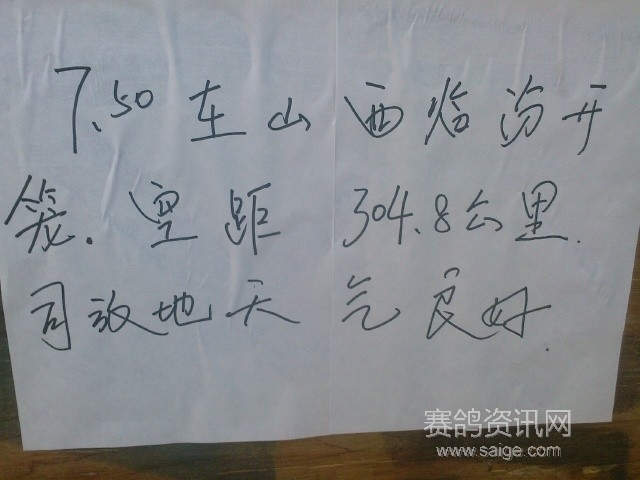 7.50在山西临汾开
笼.空距304.8公里.
司放地天气良好.
赛鸽资讯网
www.saige.com